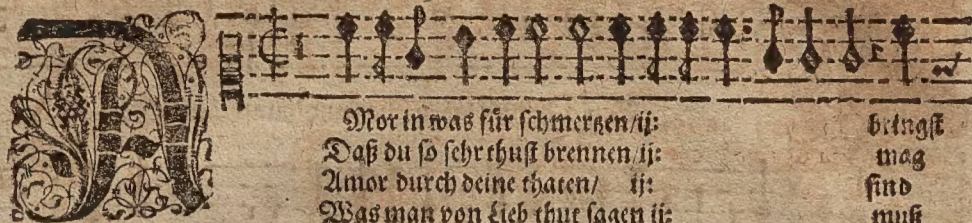 AMor in was für schmertzen/ij: bringst
Daß du so sehr thust brennen/ij: mag
Amor durch deine thaten/ ij: sind
Was man von Lieb thut sagen ij: muß